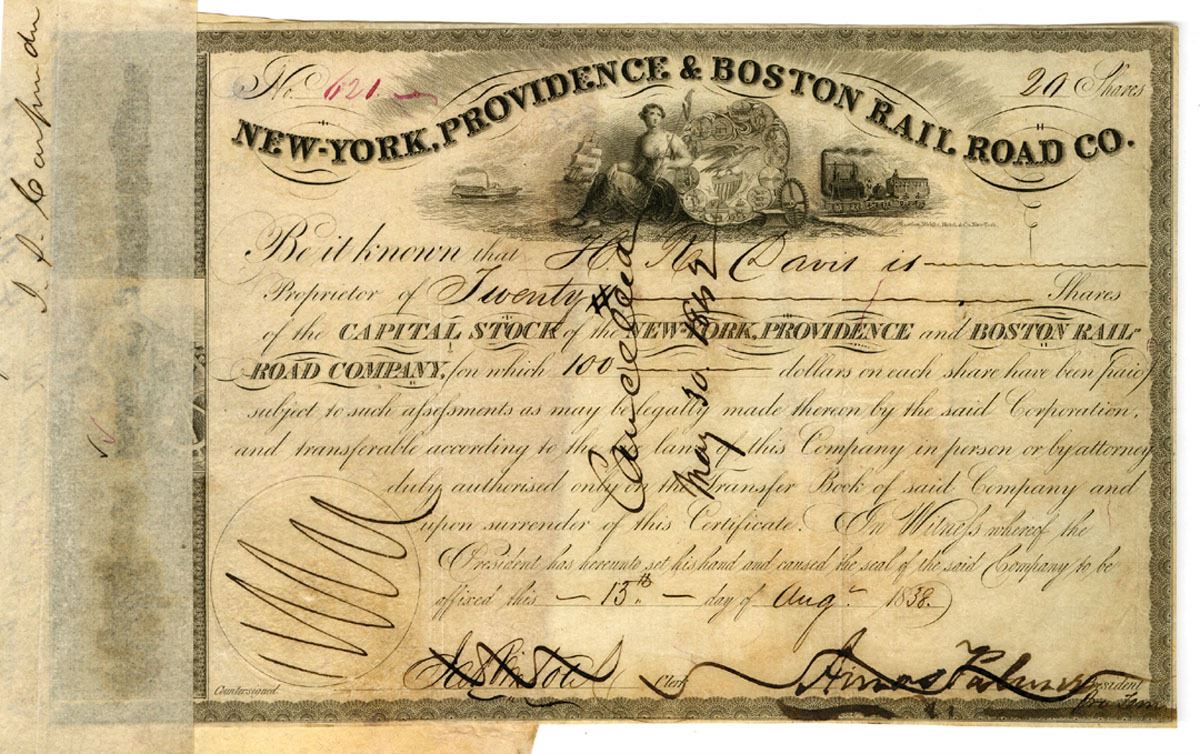 No. 621
20 Shares
NEW-YORK, PROVIDENCE & BOSTON RAIL ROAD CO.
Be it known that H. N. Davis is
Proprietor of Twenty Shares
of the CAPITAL STOCK of the NEW-YORK, PROVIDENCE and BOSTON RAIL-
ROAD COMPANY, (on which 100 dollars on each share have been paid)
subject to such assessments as may be legally made thereon by the said Corporation,
and transferable according to the laws of this Company in person or by attorney
duly authorised only on the Transfer Book of said Company and
upon surrender of this Certificate. In Witness whereof the
President has hereunto set his hand and caused the seal of the said Company to be
affixed this 13th day of Augt 1838.
Cancelled
May 30. 1842
Countersigned
Clerk
Amos Palmer President
pro Tem